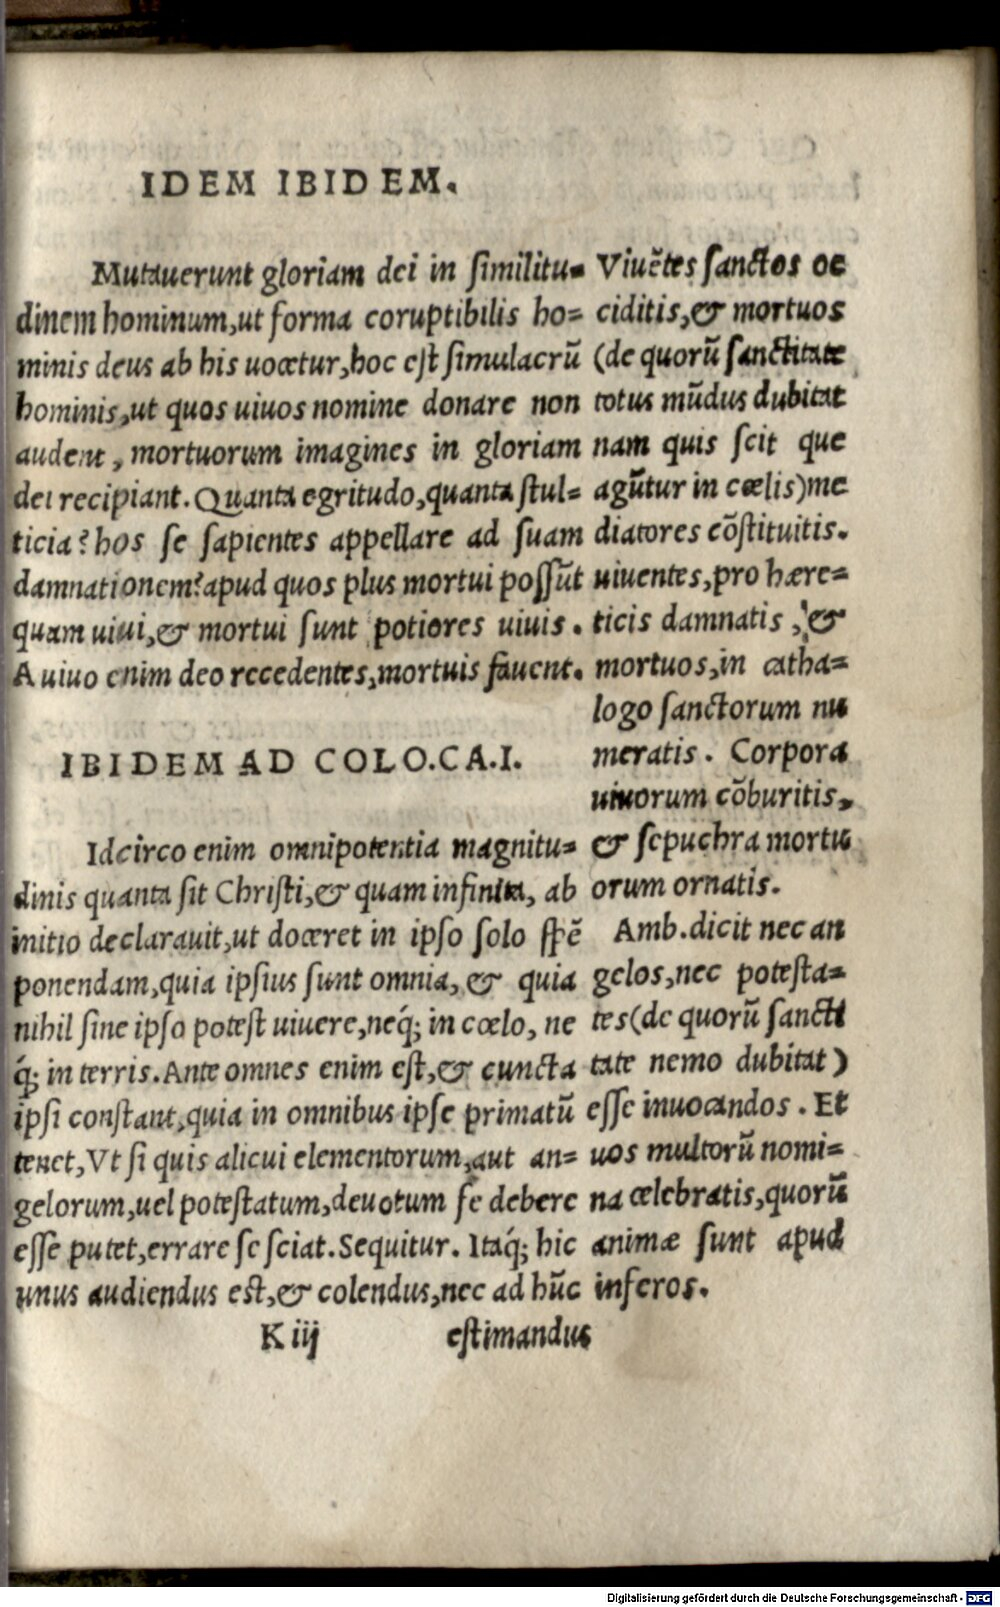 IDEM IBIDEM.
Mutauerunt gloriam dei in ſimilitu⸗
dinem hominum,ut forma coruptibilis ho⸗
minis deus ab his uocetur,hoc eſt ſimulacrũ
hominis,ut quos uiuos nomine donare non
audent, mortuorum imagines in gloriam
dei recipiant. Quanta egritudo,quanta ſtul⸗
ticia? hos ſe ſapientes appellare ad ſuam
damnationem?apud quos plus mortui poſſũt
quam uiui,& mortui ſunt potiores uiuis.
A uiuo enim deo recedentes,mortuis fauent.
IBIDEM AD COLO.CA.I.
Idcirco enim omnipotentia magnitu⸗
dinis quanta ſit Chriſti,& quam infinita, ab
initio declarauit,ut doceret in ipſo ſolo ſpẽ
ponendam,quia ipſius ſunt omnia, & quia
nihil ſine ipſo poteſt uiuere,neq́; in cœlo, ne
q́; in terris. Ante omnes enim eſt,& cuncta
ipſi conſtant,quia in omnibus ipſe primatũ
tenet,Vt ſi quis alicui elementorum,aut an⸗
gelorum,uel poteſtatum,deuotum ſe debere
eſſe putet,errare ſe ſciat. Sequitur. Itaq́; hic
unus audiendus eſt,& colendus,nec ad hũc
K iij eſtimandus
Viuẽtes ſanctos oc
ciditis,& mortuos
(de quorũ ſanctitate
totus mũdus dubitat
nam quis ſcit que
agũtur in cœlis)me
diatores cõſtituitis.
uiuentes,pro hære⸗
ticis damnatis, &
mortuos,in catha⸗
logo ſanctorum nu
meratis. Corpora
uiuorum cõburitis,
& ſepuchra mortu
orum ornatis.
Amb.dicit nec an
gelos,nec poteſta⸗
tes(de quorũ ſancti
tate nemo dubitat)
eſſe inuocandos. Et
uos multorũ nomi⸗
na celebratis,quorũ
animæ ſunt apud
inferos.
Digitalisierung gefördert durch die Deutsche Forschungsgemeinschaft - DFG